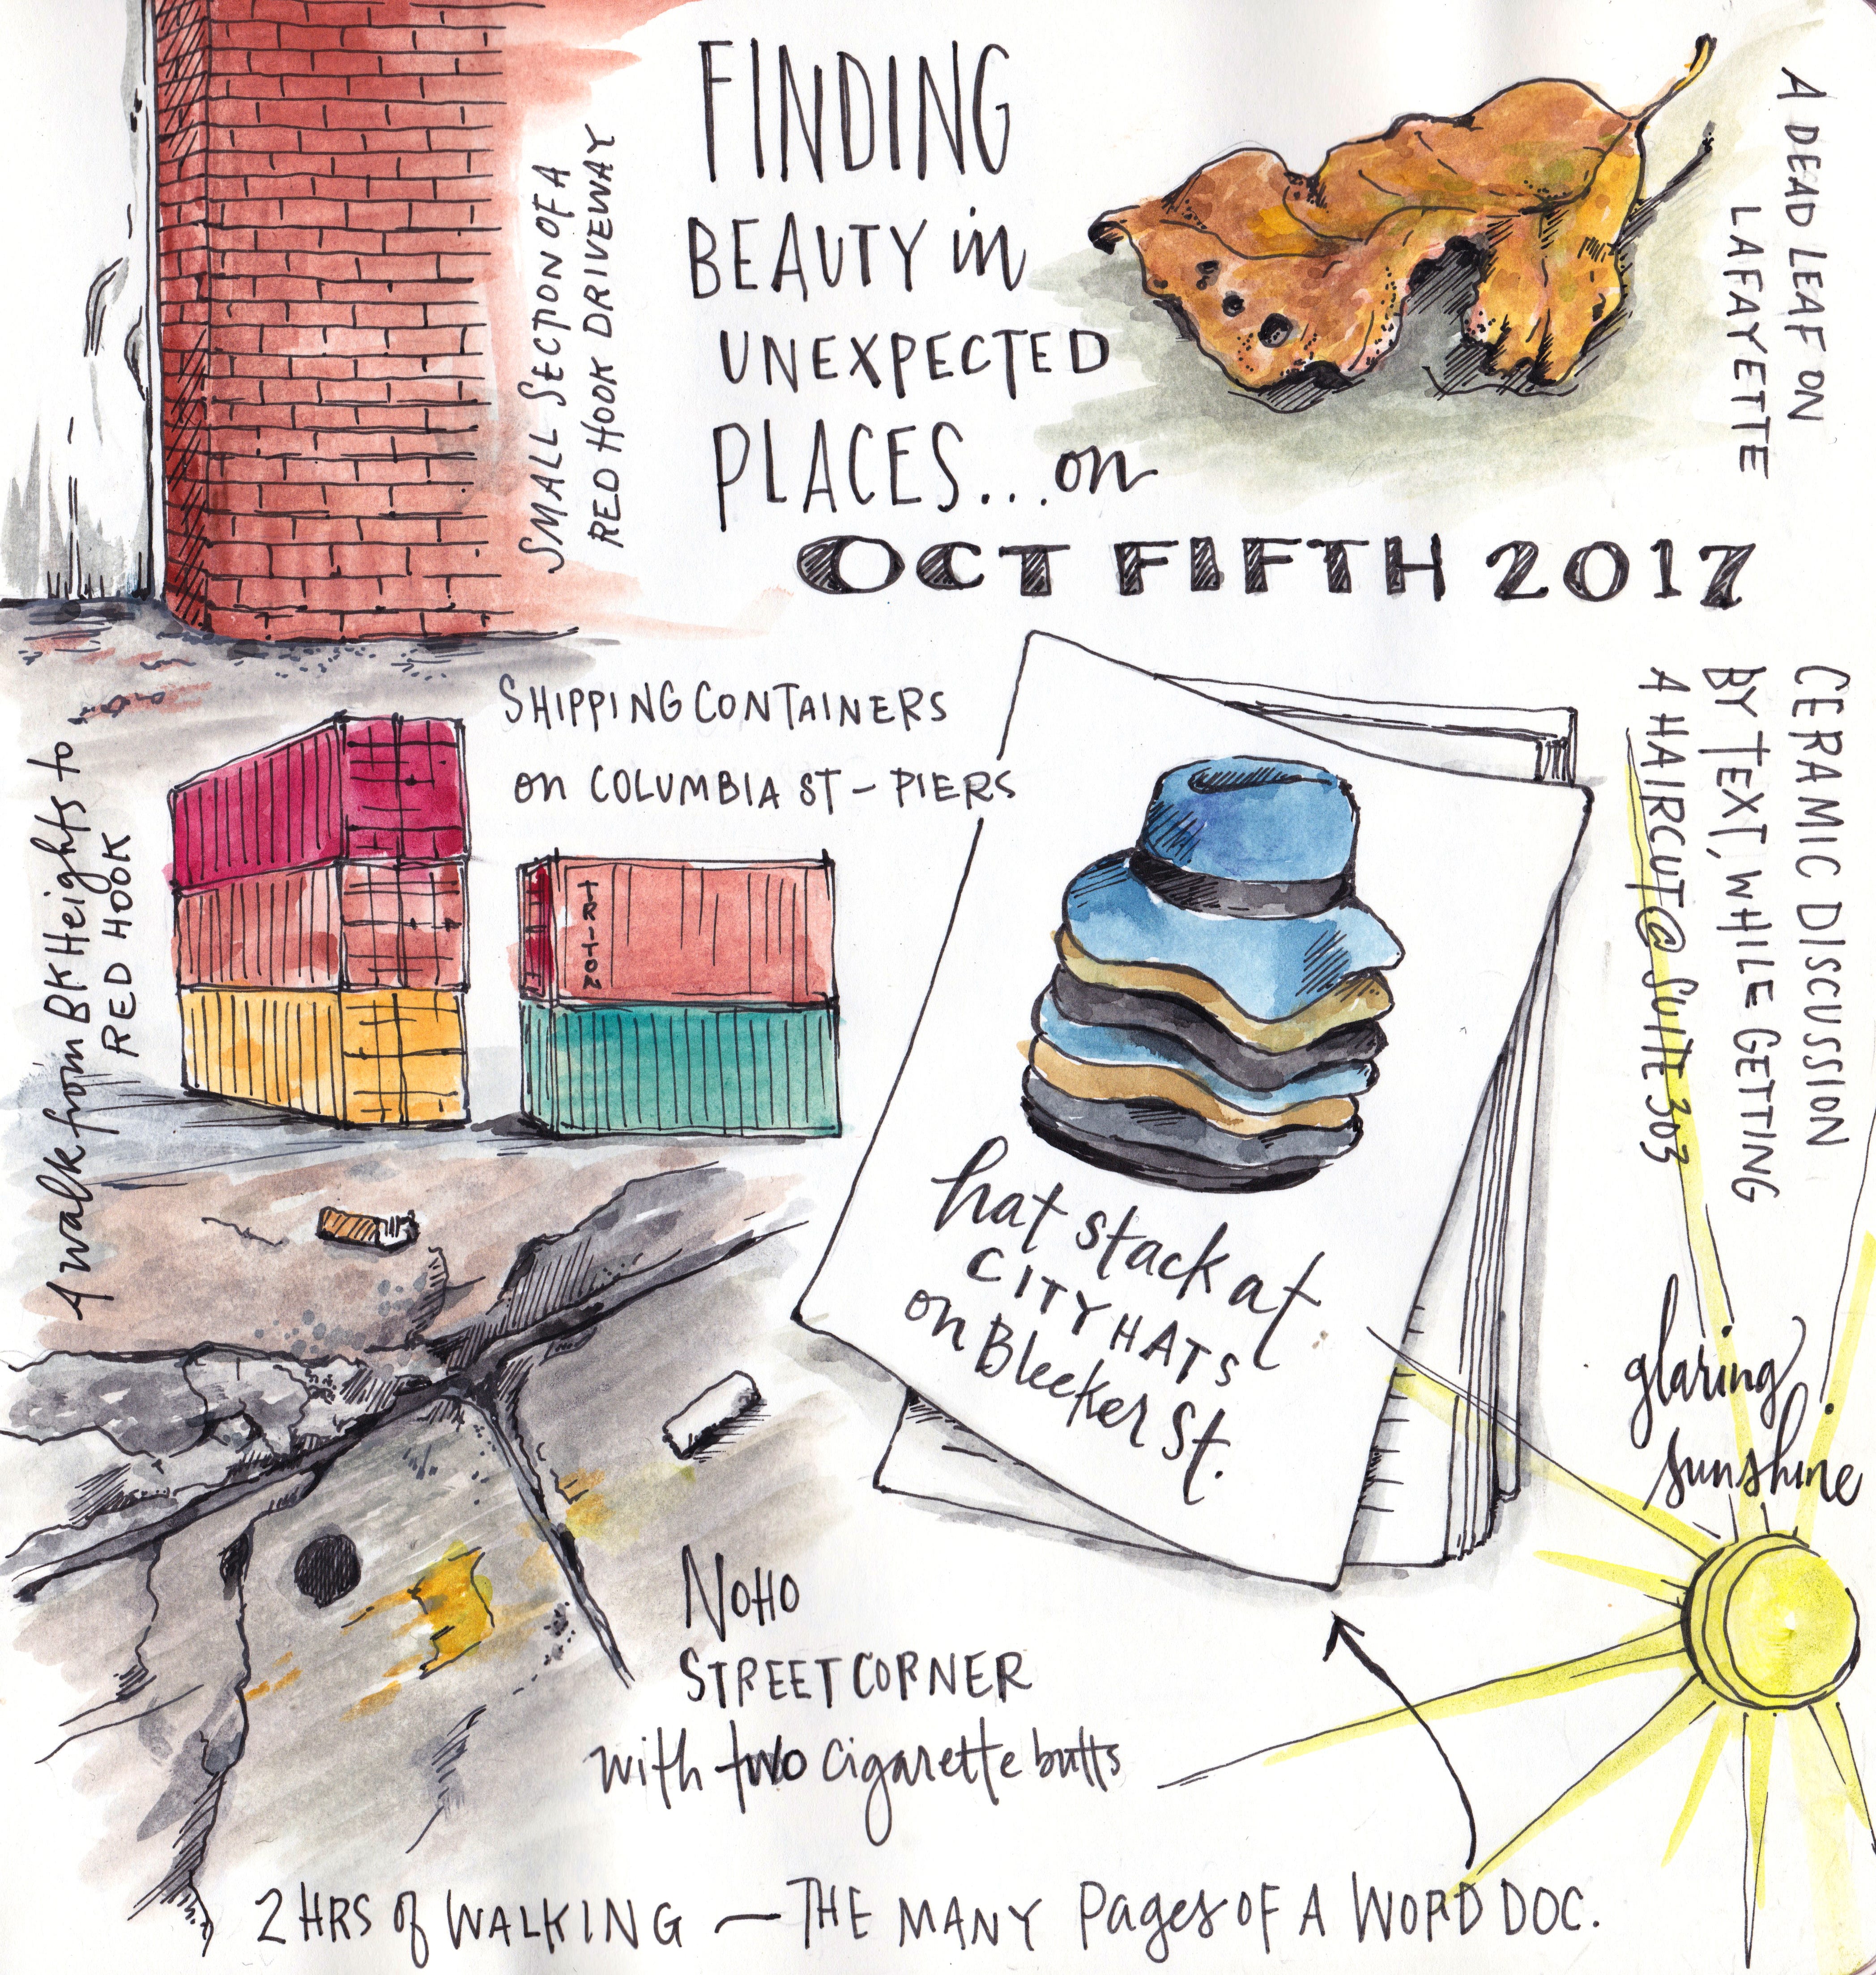 FINDING
BEAUTY in
UNEXPECTED
PLACES...on
OCT FIFTH 2017
SMALL SECTION OF A
RED HOOK DRIVEWAY
A DEAD LEAF ON
LAFAYETTE
SHIPPING CONTAINERS
on COLUMBIA ST - PIERS
TRITON
A walk from BK Heights to
RED HOOK
hat stack at
CITY HATS
on Bleeker St.
CERAMIC DISCUSSION
BY TEXT, WHILE GETTING
A HAIRCUT @ SUITE 303
glaring
sunshine
NOHO
STREET CORNER
with two cigarette butts
2 HRS of WALKING — THE MANY PAGES OF A WORD DOC.